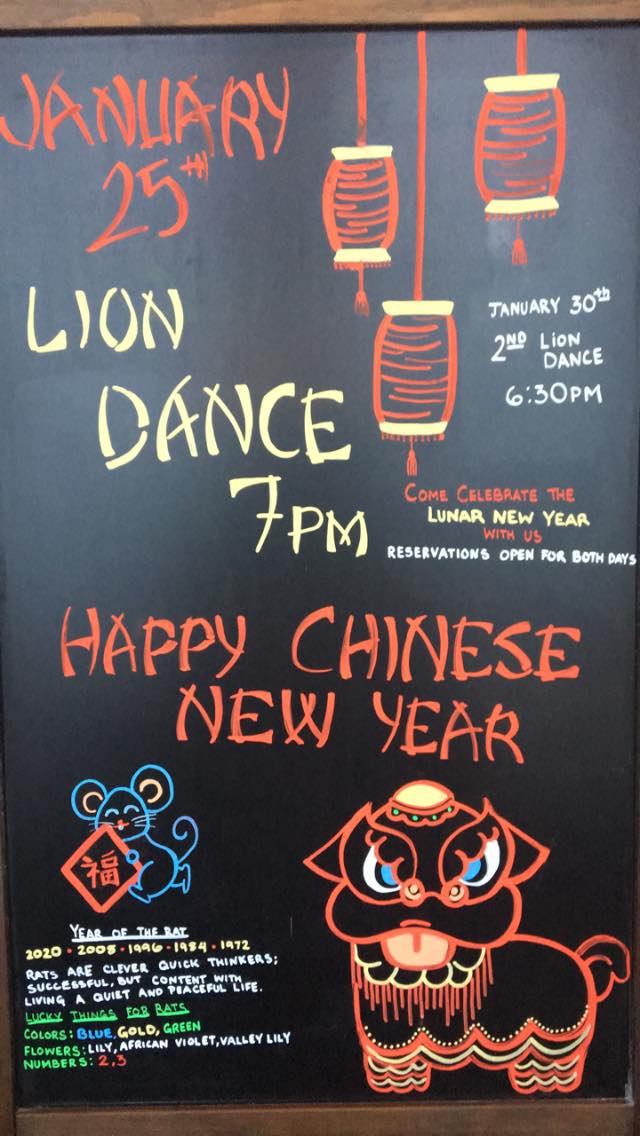 JANUARY
25TH
LION
DANCE
7PM
JANUARY 30th
2ND LION
DANCE
6:30PM
COME CELEBRATE THE
LUNAR NEW YEAR
WITH US
RESERVATIONS OPEN FOR BOTH DAYS
HAPPY CHINESE
NEW YEAR
福
YEAR OF THE RAT
2020 • 2008 • 1996 • 1984 • 1972
RATS ARE CLEVER QUICK THINKERS;
SUCCESSFUL, BUT CONTENT WITH
LIVING A QUIET AND PEACEFUL LIFE.
LUCKY THINGS FOR RATS
COLORS: BLUE, GOLD, GREEN
FLOWERS: LILY, AFRICAN VIOLET, VALLEY LILY
NUMBERS: 2,3